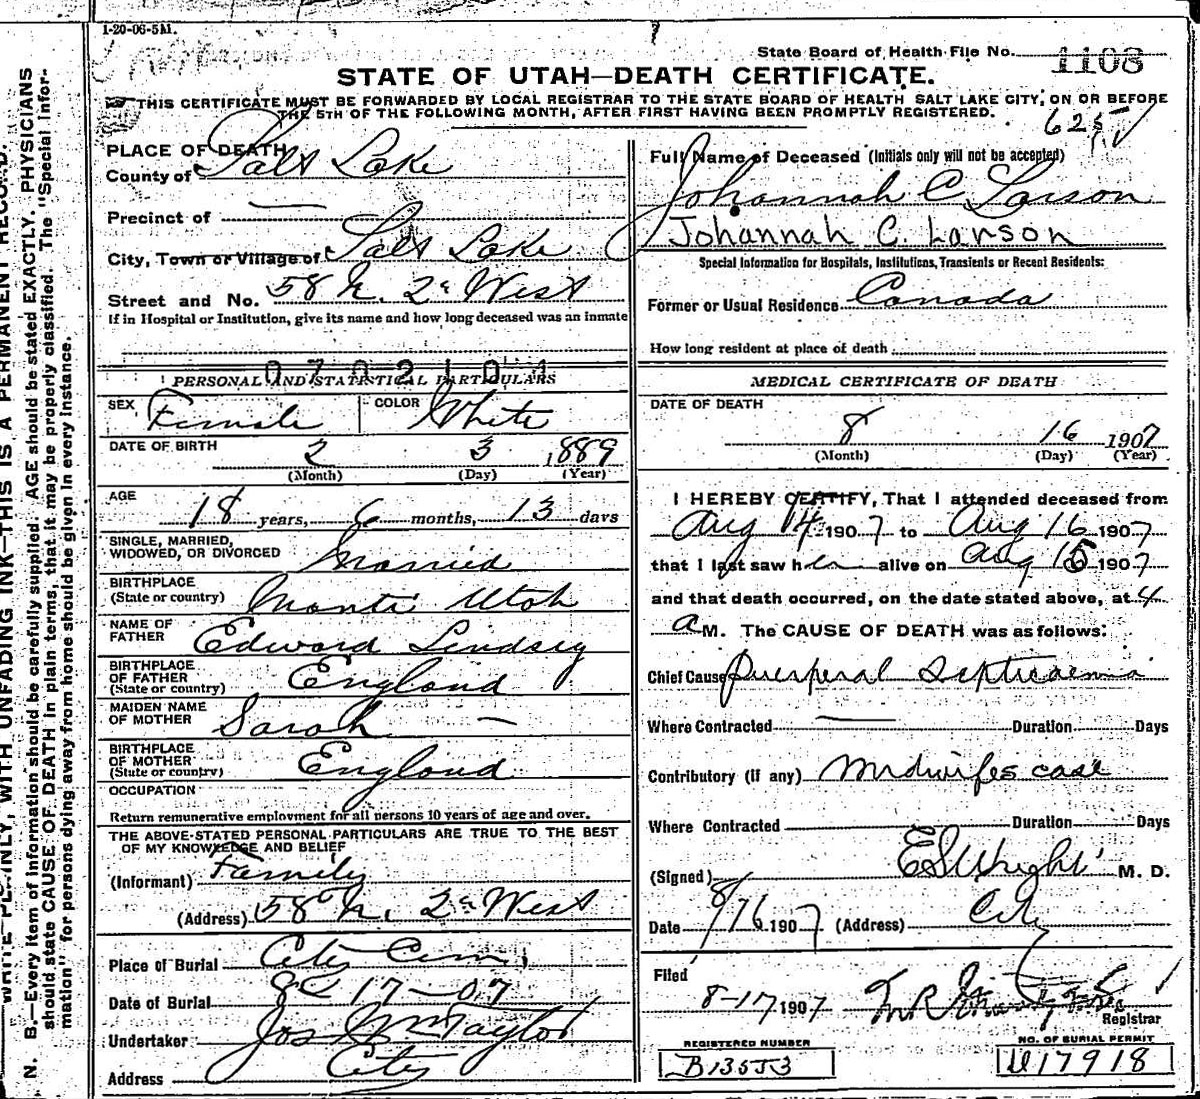 1-20-06-5M.
State Board of Health File No. 1108
STATE OF UTAH—DEATH CERTIFICATE.
THIS CERTIFICATE MUST BE FORWARDED BY LOCAL REGISTRAR TO THE STATE BOARD OF HEALTH SALT LAKE CITY, ON OR BEFORE
THE 5TH OF THE FOLLOWING MONTH, AFTER FIRST HAVING BEEN PROMPTLY REGISTERED.
625
PLACE OF DEATH
County of Salt Lake
Precinct of —
City, Town or Village of Salt Lake
Street and No. 58 N. 2d West
If in Hospital or Institution, give its name and how long deceased was an inmate
0702104
PERSONAL AND STATISTICAL PARTICULARS
SEX Female COLOR White
DATE OF BIRTH 2 3 1889
(Month) (Day) (Year)
AGE 18 years, 6 months, 13 days
SINGLE, MARRIED,
WIDOWED, OR DIVORCED Married
BIRTHPLACE
(State or country) Manti Utah
NAME OF
FATHER Edward Lindsey
BIRTHPLACE
OF FATHER
(State or country) England
MAIDEN NAME
OF MOTHER Sarah —
BIRTHPLACE
OF MOTHER
(State or country) England
OCCUPATION
Return remunerative employment for all persons 10 years of age and over.
THE ABOVE-STATED PERSONAL PARTICULARS ARE TRUE TO THE BEST
OF MY KNOWLEDGE AND BELIEF
(Informant) Family
(Address) 58 N. 2d West
Place of Burial City Cem.
Date of Burial 8-17-07
Undertaker Jos Wm Taylor
Address City
Full Name of Deceased (Initials only will not be accepted)
Johannah C Larson
Johannah C. Larson
Special Information for Hospitals, Institutions, Transients or Recent Residents:
Former or Usual Residence Canada
How long resident at place of death
MEDICAL CERTIFICATE OF DEATH
DATE OF DEATH
8 16 1907
(Month) (Day) (Year)
I HEREBY CERTIFY, That I attended deceased from
Aug 14 1907 to Aug 16 1907
that I last saw her alive on Aug 15 1907
and that death occurred, on the date stated above, at 4
a M. The CAUSE OF DEATH was as follows:
Chief Cause puerperal septicaemia
Where Contracted — Duration Days
Contributory (if any) Midwifes case
Where Contracted Duration Days
(Signed) E S Wright M. D.
Date 8/16 1907 (Address) City
Filed
8-17 1907
Registrar
REGISTERED NUMBER
B13553
NO. OF BURIAL PERMIT
D17918
WRITE PLAINLY, WITH UNFADING INK—THIS IS A PERMANENT RECORD.
N. B.—Every item of information should be carefully supplied. AGE should be stated EXACTLY. PHYSICIANS
should state CAUSE OF DEATH in plain terms, that it may be properly classified. The "Special Infor-
mation" for persons dying away from home should be given in every instance.